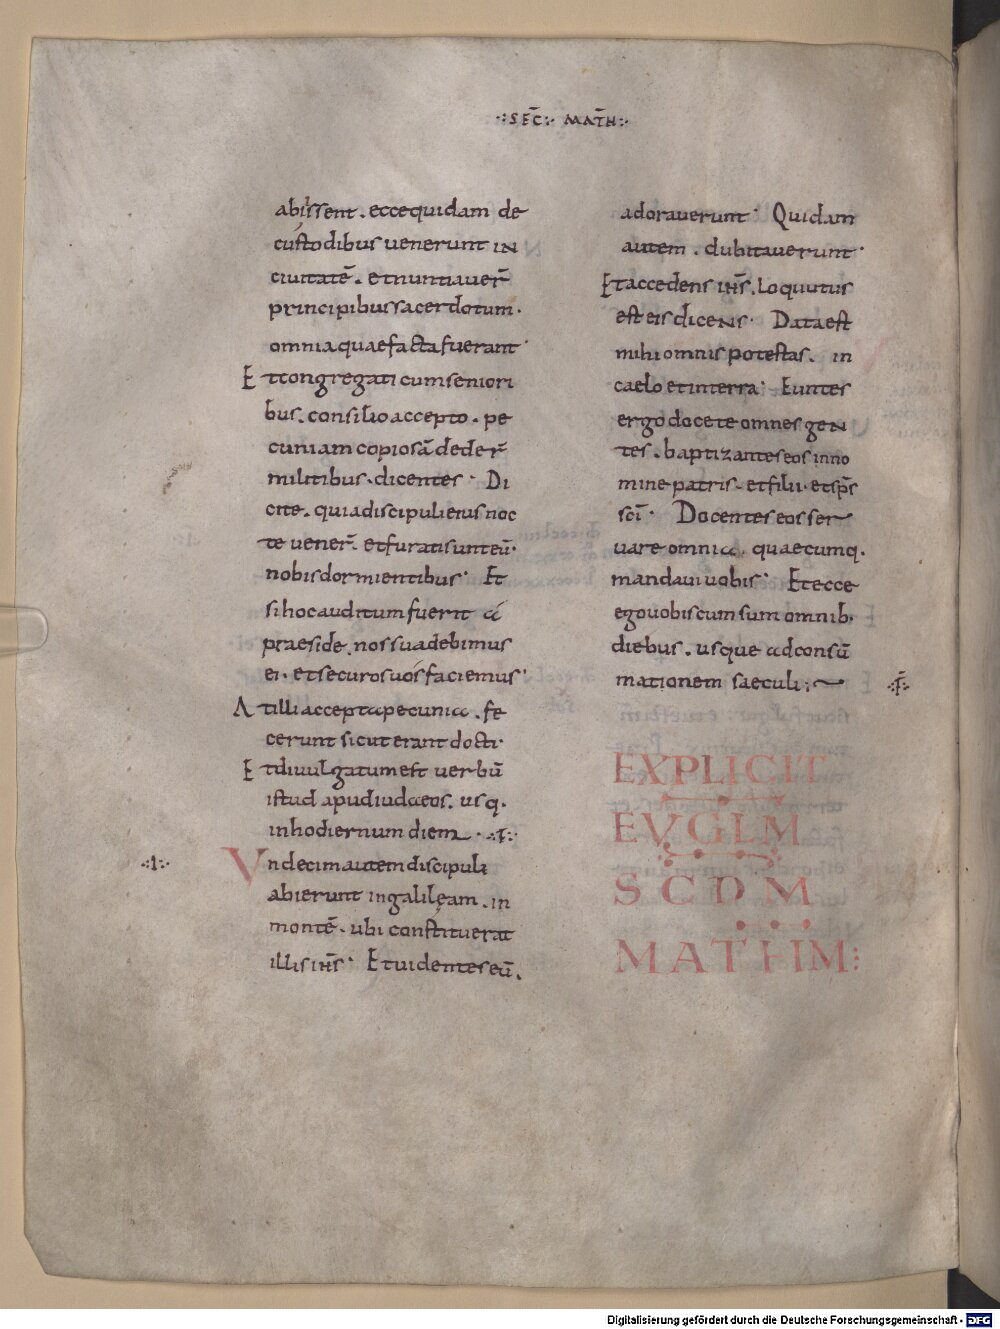 ·:SEC̄:· MAT̄H:·
abissent . ecce quidam de
custodibus uenerunt in
ciuitatē . et nuntiauer̄
principibus sacerdotum .
omnia quae facta fuerant·
Et congregati cum seniori
bus . consilio accepto . pe
cuniam copiosā deder̄
militibus . dicentes · Di
cite . quia discipuli eius noc
te uener̄ . et furati sunt eū .
nobis dormientibus · Et
si hoc auditum fuerit á
praeside . nos suadebimus
ei . et securos uos faciemus·
At illi accepta pecunia . fe
cerunt sicut erant docti·
Et diuulgatum est uerbū
istud apud iudaeos . usq .
in hodiernum diem . ·:f:·
·:1:· Vndecim autem discipuli
abierunt in galilęam . in
montē . ubi constituerat
illis ih̄s · Et uidentes eū .
adorauerunt · Quidam
autem . dubitauerunt ·
Et accedens ih̄s . loquutus
est eis dicens · Data est
mihi omnis potestas . in
caelo et in terra · Euntes
ergo docete omnes gen
tes . baptizantes eos in no
mine patris . et filii . et sp̄s
sc̄i · Docentes eos ser
uare omnia . quaecumq .
mandaui uobis · Et ecce
ego uobiscum sum omnib .
diebus . usque ad consū
mationem saeculi ;
·:f:·
EXPLICIT
EVGLM
SCDM
MATHM:
Digitalisierung gefördert durch die Deutsche Forschungsgemeinschaft - DFG